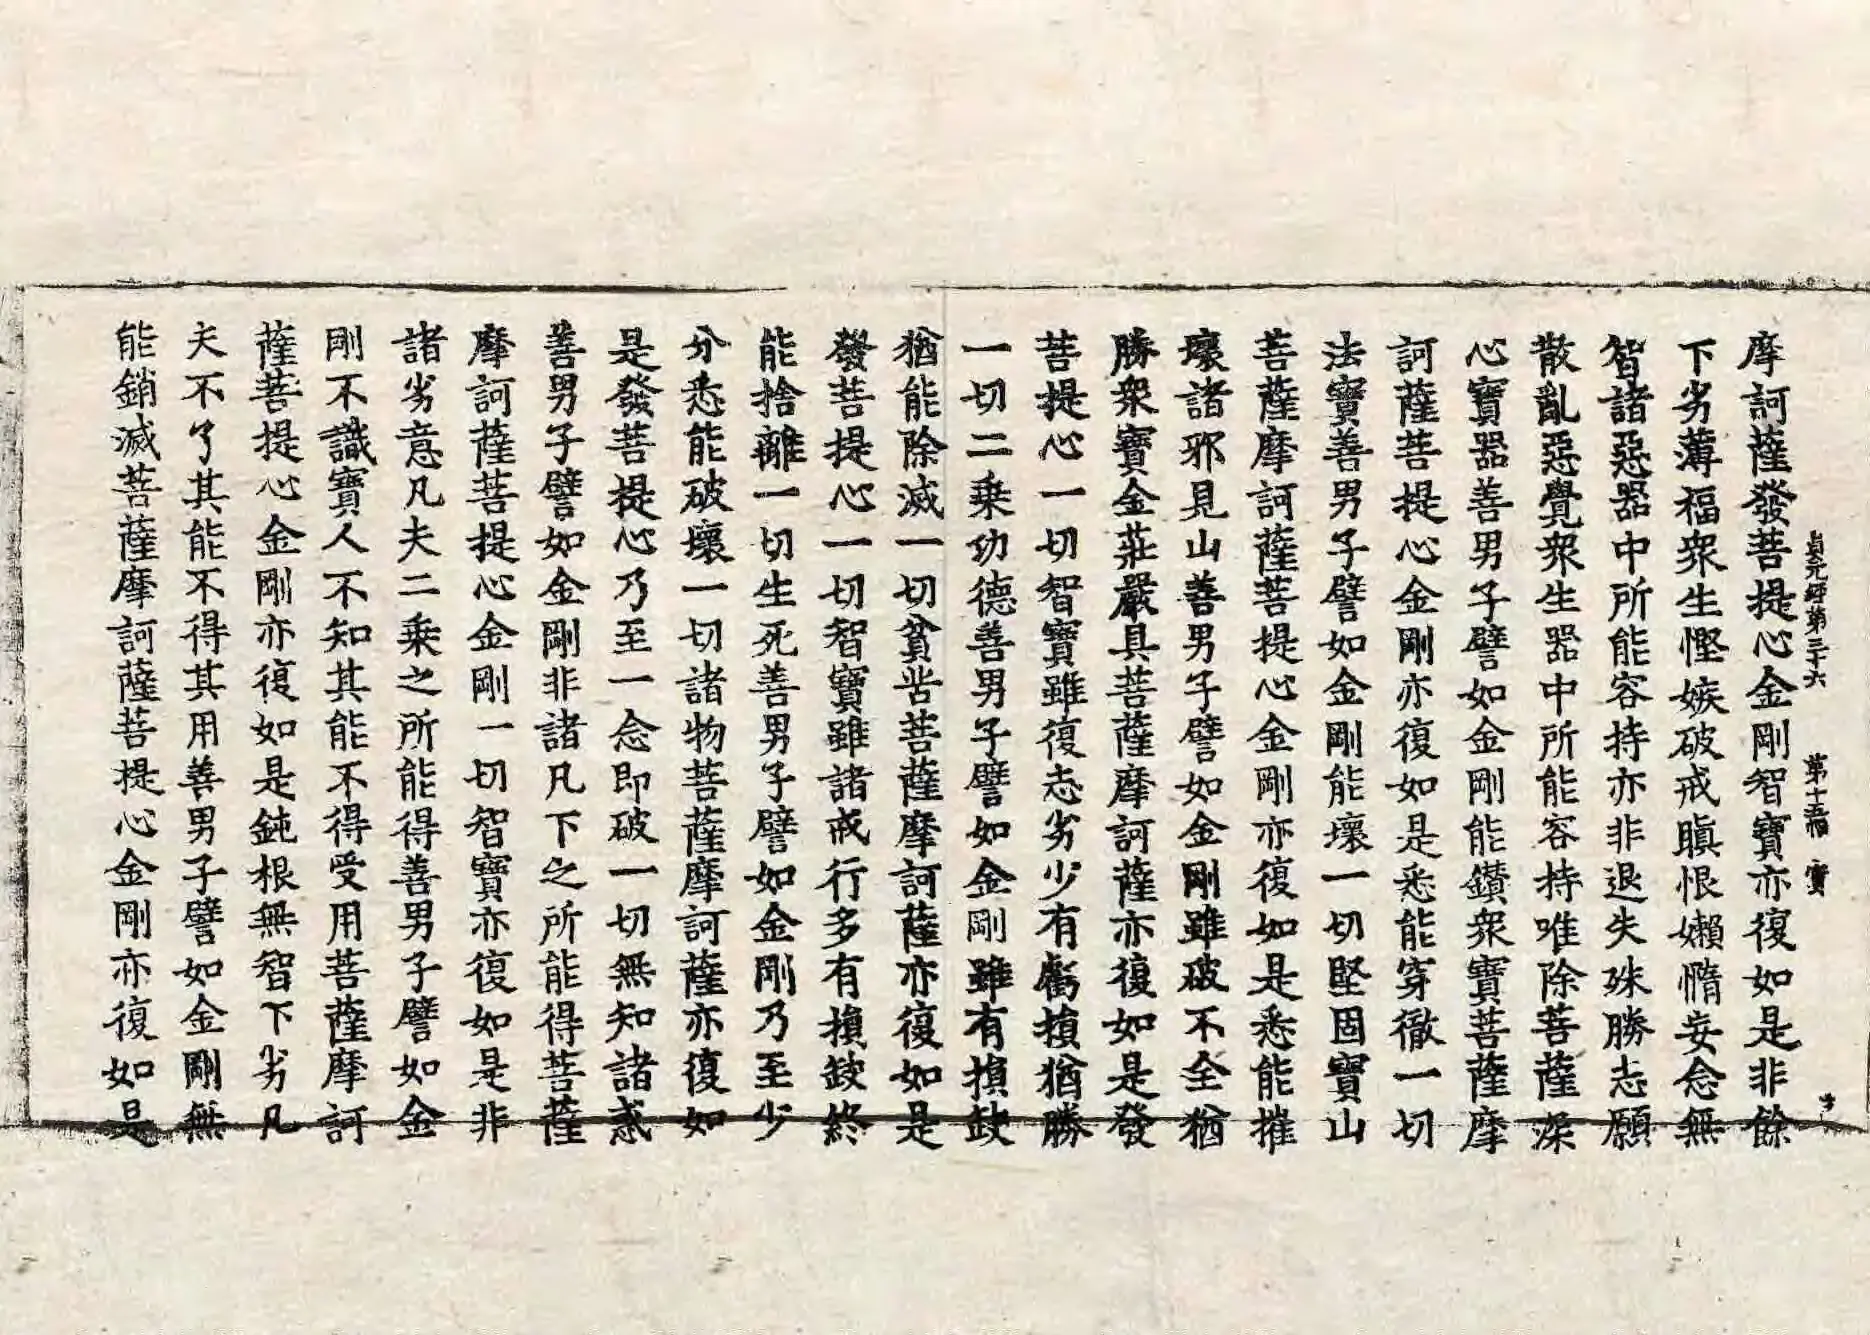 貞元經第三十六 第十五幅 寶
摩訶薩發菩提心金剛智寶亦復如是非餘
下劣薄福衆生慳嫉破戒瞋恨懶惰妄念無
智諸惡器中所能容持亦非退失殊勝志願
散亂惡覺衆生器中所能容持唯除菩薩深
心寶器善男子譬如金剛能鑽衆寶菩薩摩
訶薩菩提心金剛亦復如是悉能穿徹一切
法寶善男子譬如金剛能壞一切堅固寶山
菩薩摩訶薩菩提心金剛亦復如是悉能摧
壞諸邪見山善男子譬如金剛雖破不全猶
勝衆寶金莊嚴具菩薩摩訶薩亦復如是發
菩提心一切智寶雖復志劣少有虧損猶勝
一切二乗功德善男子譬如金剛雖有損缺
猶能除滅一切貧苦菩薩摩訶薩亦復如是
發菩提心一切智寶雖諸戒行多有損缺終
能捨離一切生死善男子譬如金剛乃至少
分悉能破壞一切諸物菩薩摩訶薩亦復如
是發菩提心乃至一念即破一切無知諸惑
善男子譬如金剛非諸凡下之所能得菩薩
摩訶薩菩提心金剛一切智寶亦復如是非
諸劣意凡夫二乗之所能得善男子譬如金
剛不識寶人不知其能不得受用菩薩摩訶
薩菩提心金剛亦復如是鈍根無智下劣凡
夫不了其能不得其用善男子譬如金剛無
能銷滅菩薩摩訶薩菩提心金剛亦復如是